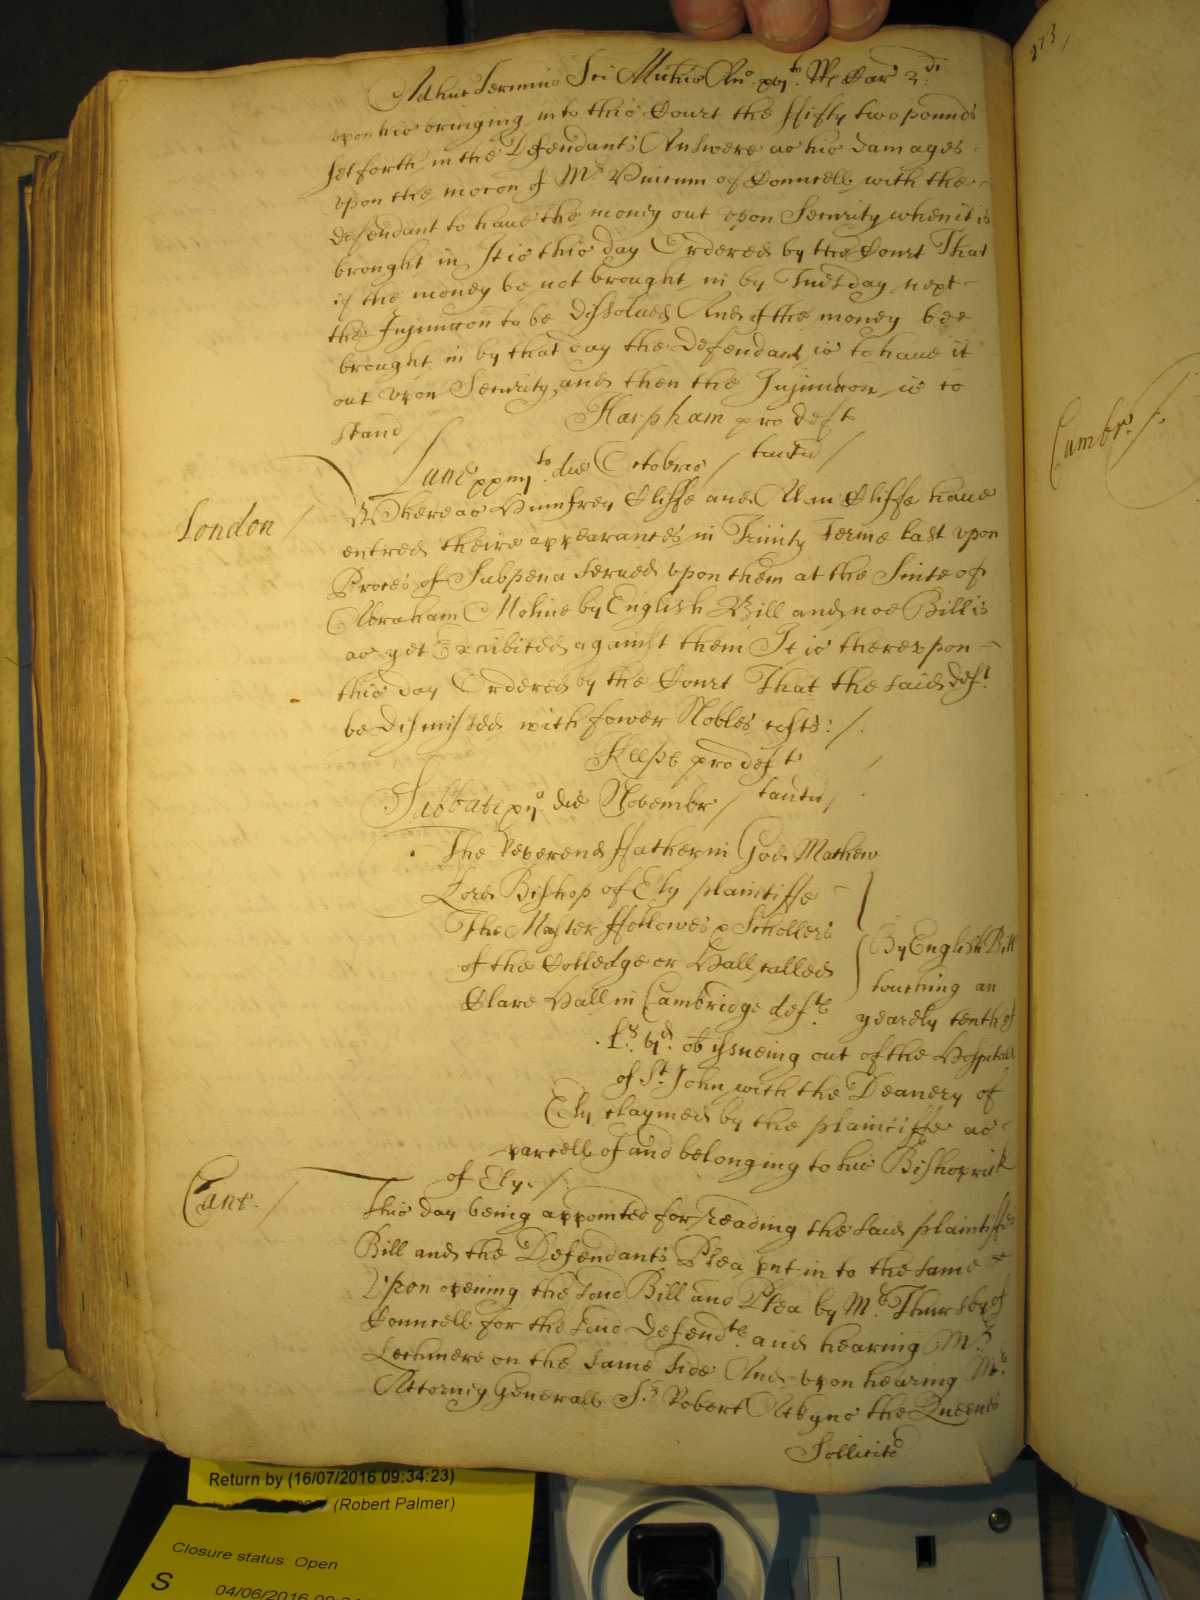 Adhuc Termino Sci Mich̃is Ano. xvjto. RRs Car 2di
273/
vpon his bringing into this Court the ffifty two pounds
set forth in the Defendants Answere as his damages
vpon the mocon of Mr of Councell with the
defendant to haue the money out vpon Security when it is
brought in It is this day Ordered by the Court That
if the money be not brought in by Tuesday next
the Injuncon to be dissolued And if the money bee
brought in by that day the defendant is to haue it
out vpon Security, and then the Injuncon is to
stand /
Harpham pro deft
Lune xxiiijto. die Octobris / tautu /
London /
Whereas Humfrey Cliffe and Alan Cliffe haue
entred theire appearances in Trinity Terme last vpon
Proces of Subpena serued vpon them at the Suite of
Abraham Moline by English Bill and noe Bill is
as yet Exhibited against them It is therevpon
this day Ordered by the Court That the said deft
be dismissed with fower Nobles costs: /.
Keepe pro deft
Sabbati xijo. die Novembr / tautu /
The Reverend ffather in God Mathew
Lord Bishop of Ely plaintiffe
The Master ffellowes & Schollers
of the Colledge or Hall called
Clare Hall in Cambridge defts.
By English Bill
touching an
yearely tenth of
Ls. vjd. ob issueing out of the Hospitall
of St. John with the Deanery of
Ely claymed by the plaintiffe as
parcell of and belonging to his Bishoprick
of Ely. /.
Cant. /
Cambr. /.
This day being appointed for reading the said plaintiffs
Bill and the Defendants Plea put in to the same
Vpon opening the said Bill and Plea by Mr. Thursby of
Councell for the said Defendts. and hearing Mr.
Lechmere on the same side And vpon hearing Mr.
Attorney Generall Sr. Robert Atkyns the Queenes
Sollicitor
Return by (16/07/2016 09:34:23)
(Robert Palmer)
Closure status: Open
S
04/06/2016